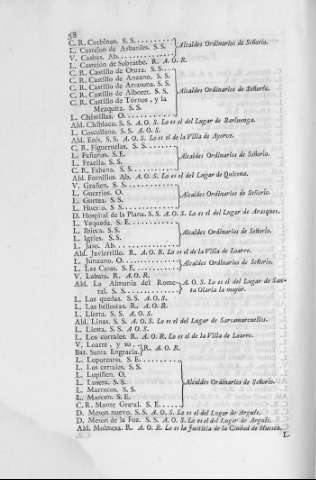 38
C. R. Corbinos. S. S.
L. Castejon de Arbanies. S. S. Alcaldes Ordinarios de Señorio.
V. Casbas. Ab.
L. Castejón de Sobrarbe. R. A. O. R.
C. R. Castillo de Orusa. S. S.
C. R. Castillo de Anzano. S. S.
C. R. Castillo de S. S.
C. R. Castillo de Alboret. S. S. Alcaldes Ordinarios de Señorio.
C. R. Castillo de Tormos, y la
Mezquita. S. S.
L. Chibrillas. O.
Ald. Chibluco. S. S. A. O. S. Lo es el del Lugar de Barluenga.
L. Coscullano. S. S. A. O. S.
Ald. Erés. S. S. A. O. S. Lo es el de la Villa de Ayerve.
C. R. Figueruelas. S. S.
L. Fañanas. S. E. Alcaldes Ordinarios de Señorio.
L. Fraella. S. S.
C. R. Fabana. S. S.
Ald. Fornillos. Ab. A. O. S. Lo es el del Lugar de Quicena.
V. Grañen. S. S.
L. Guerrios. O. Alcaldes Ordinarios de Señorio.
L. Guensa. S. S.
L. Huerto. S. S.
D. Hospital de la Plana. S. S. A. O. S. Lo es el del Lugar de Arasques.
L. Yequeda. S. E.
L. Ibieca. S. S. Alcaldes Ordinarios de Señorio.
L. Igries. S. S.
L. Jaso. Ab.
Ald. Javierrillo. R. A. O. R. Lo es el de la Villa de Loarre.
L. Junzano. O. Alcaldes Ordinarios de Señorio.
L. Las Casas. S. E.
V. Labata. R. A. O. R.
Ald. La Almunia del Rome- A. O. S. Lo es el del Lugar de San-
ral. S. S. ta Olaria la mayor.
L. Las quedas. S. S. A. O. S.
L. Las bellostas. R. A. O. R.
L. Lierta. S. S. A. O. S.
Ald. Linas. S. S. A. O. S. Lo es el del Lugar de Sarsamarcuello.
L. Liesta. S. S. A. O. S.
L. Los corrales. R. A. O. R. Lo es el de la Villa de Loarre.
V. Loarre, y su, A. O. R.
Bar. Santa Engracia. R.
L. Loporzano. S. E.
L. Los certales. S. S.
L. Lupiñen. O.
L. Lusera. S. S. Alcaldes Ordinarios de Señorio.
L. Marracos. S. S.
L. Marcen. S. E.
C. R. Monte Grasal. S. E.
D. Meson nuevo. S. S. A. O. S. Lo es el del Lugar de Arguis.
D. Meson de la Foz. S. S. A. O. S. Lo es el del Lugar de Arguis.
Ald. Molinosa. R. A. O. R. Lo es la Justicia de la Ciudad de Huesca.
L.